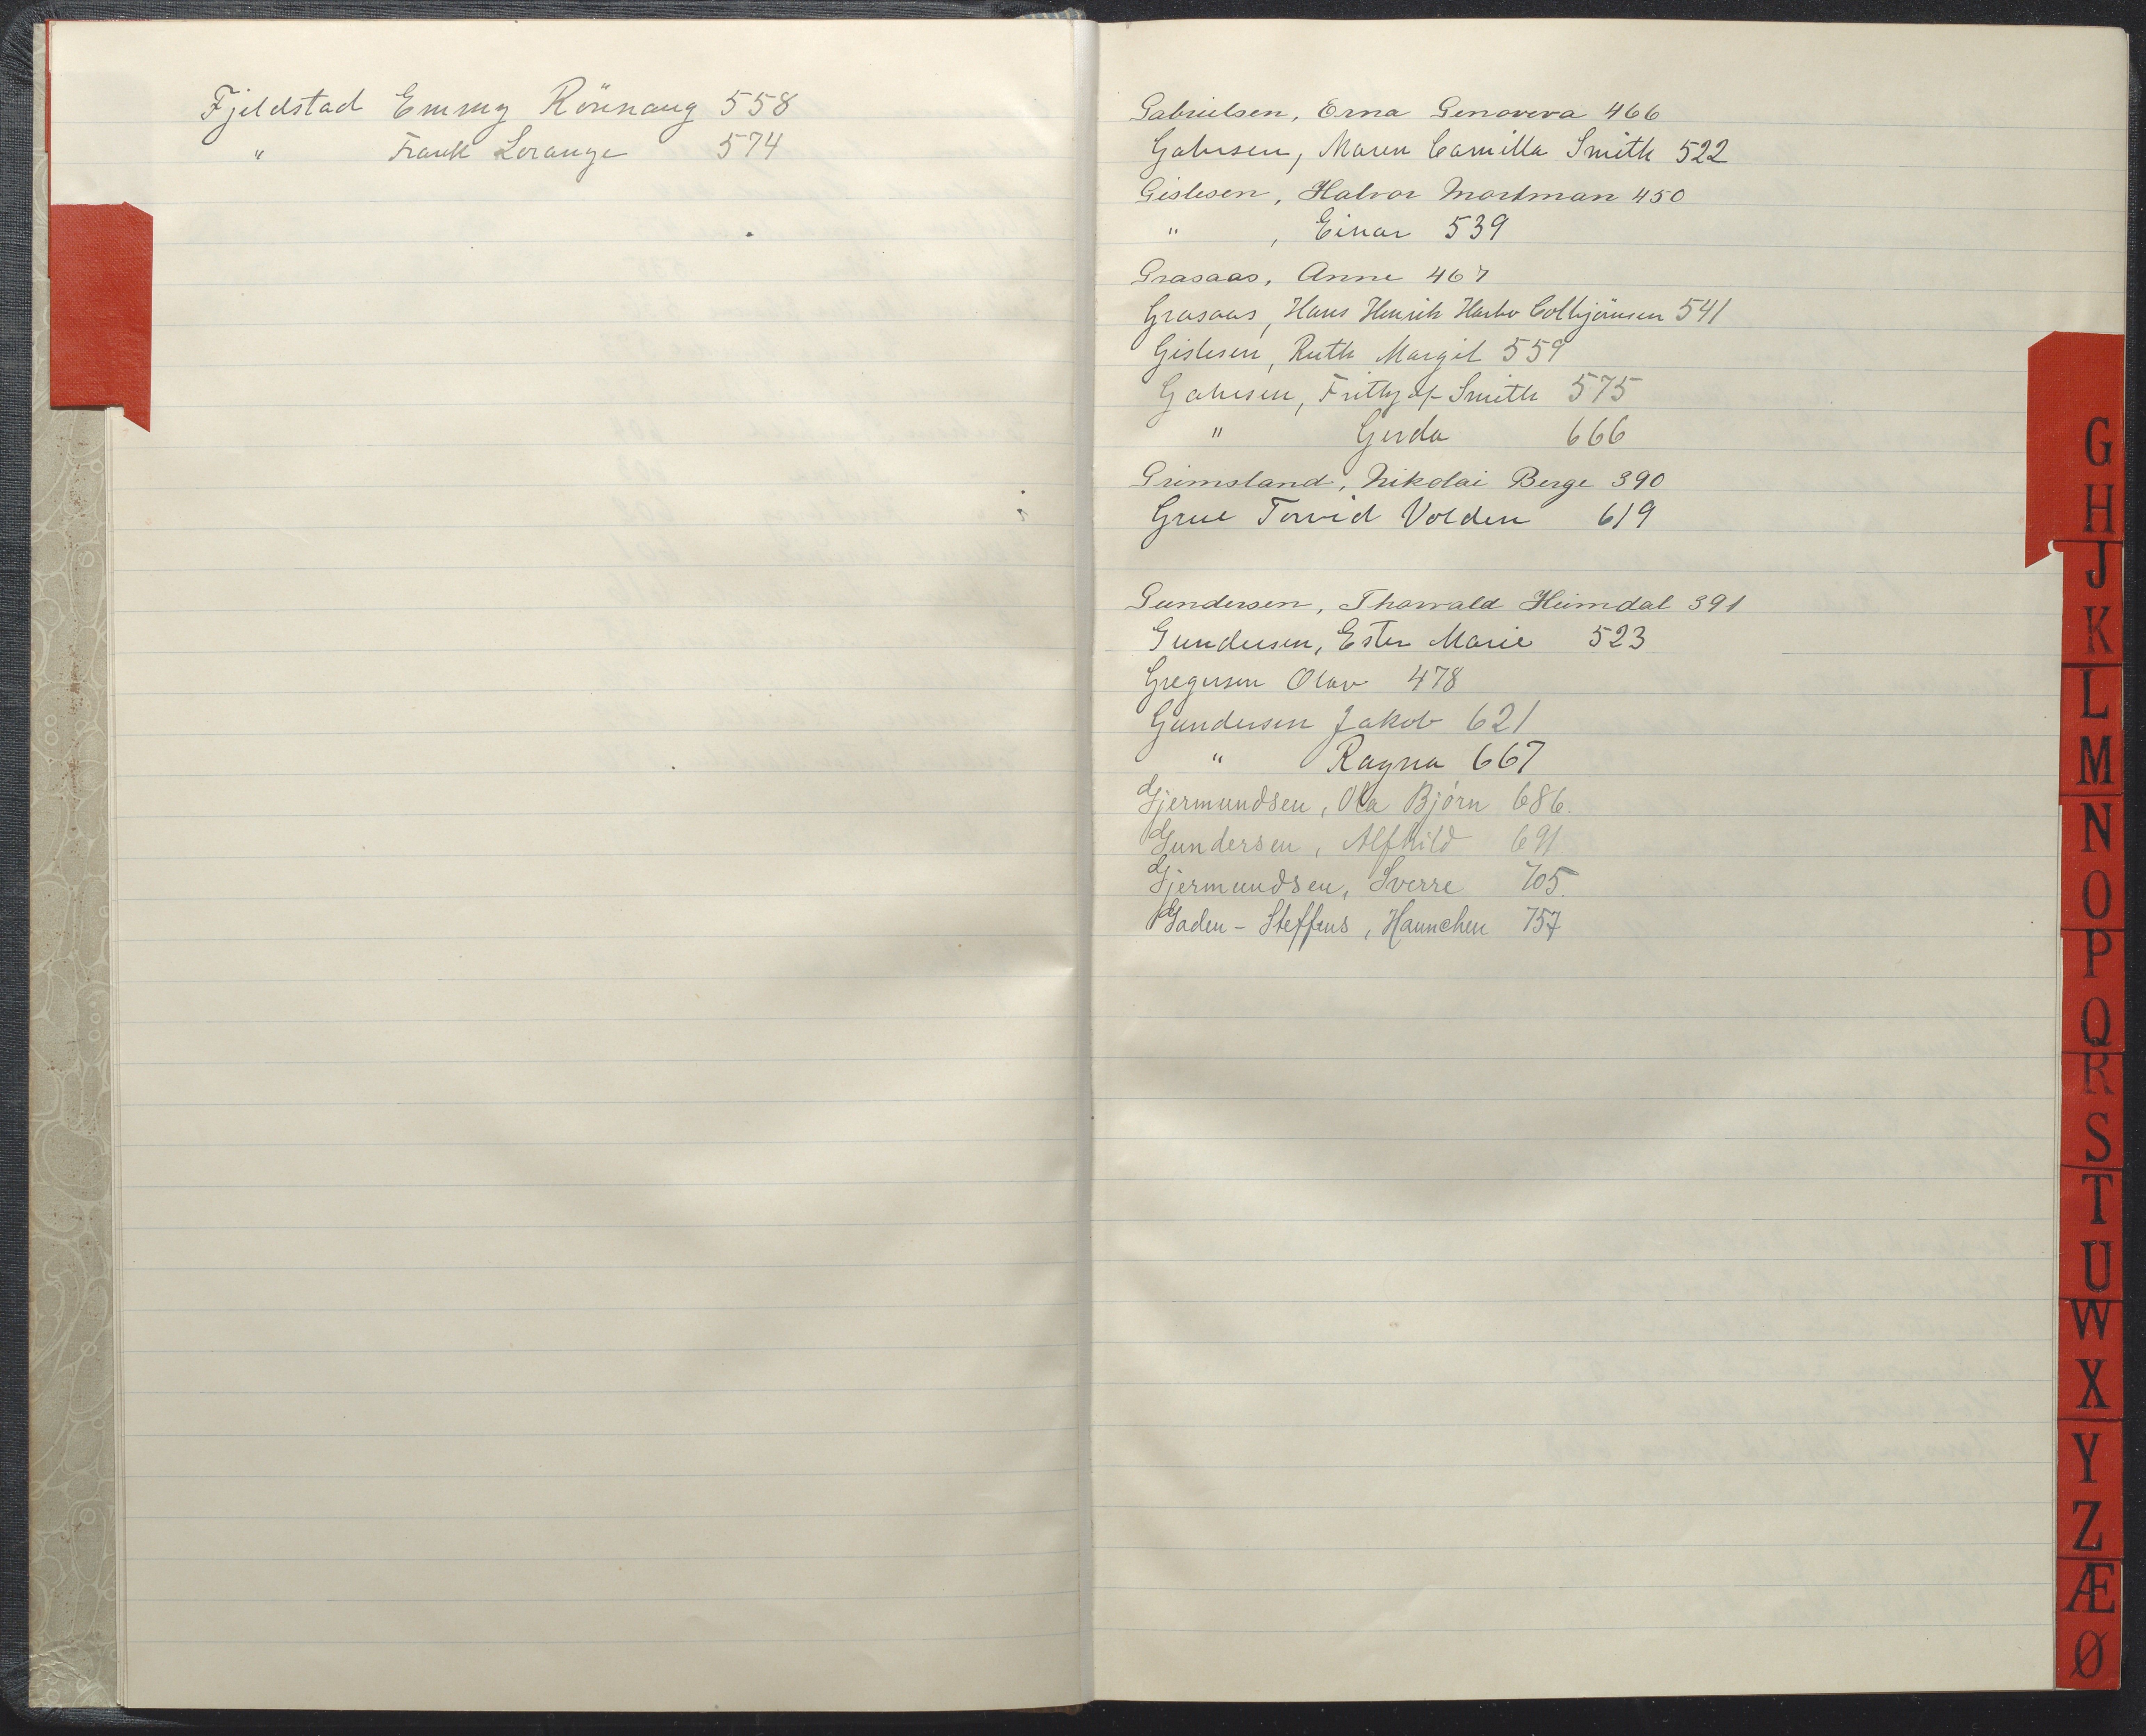 Fjeldstad Emmy Rönnaug 558
" Frank Lorange 574
Gabrielsen, Erna Genoveva 466
Gahrsen, Maren Camilla Smith 522
Gislesen, Halvor Mortman 450
" , Einar 539
Grasaas, Anne 467
Grasaas, Hans Henrik Harbo Colbjörnsen 541
Gislesen, Ruth Margit 559
Gahrsen, Frithjof Smith 575
" Gerda 666
Grimsland, Nikolai Berge 390
Grue Torvid Volden 619
Gundersen, Thorvald Heimdal 391
Gundersen, Ester Marie 523
Gregersen Olav 478
Gundersen Jakob 621
" Ragna 667
Gjermundsen, Ola Bjørn 686.
Gundersen, Alfhild 691
Gjermundsen, Sverre 705.
Gaden-Steffens, Hannchen 757
G
H
J
K
L
M
N
O
P
Q
R
S
T
U
W
X
Y
Z
Æ
Ø